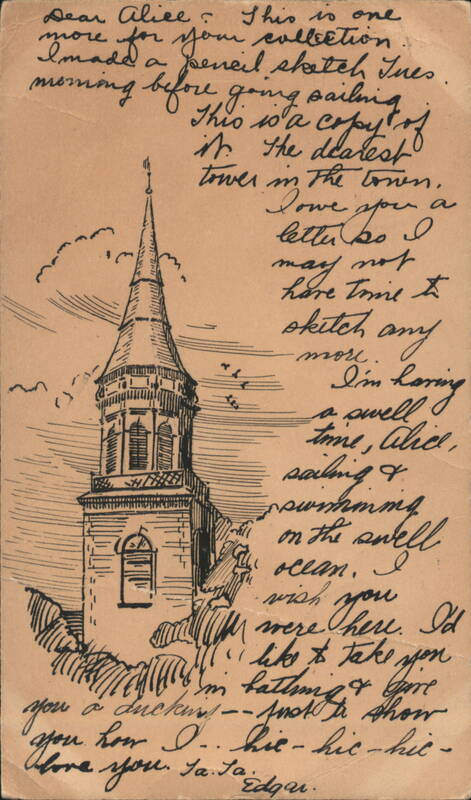 Dear Alice - This is one
more for your collection.
I made a pencil sketch Tues.
morning before going sailing
This is a copy of
it. The dearest
tower in the town.
I owe you a
letter so I
may not
have time to
sketch any
more.
I'm having
a swell
time, Alice,
sailing &
swimming
on the swell
ocean. I
wish you
were here. I'd
like to take you
in bathing & give
you a ducking -- just to show
you how I -- hic - hic - hic -
love you. Ta. Ta.
Edgar.